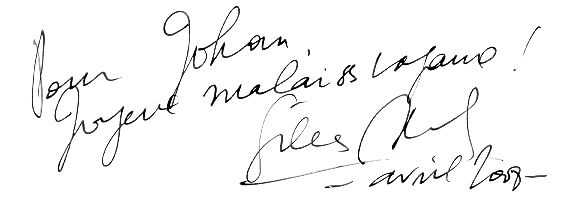 Pour Johan
Joyeux malais vagaux !
Gilles
- avril 2008 -